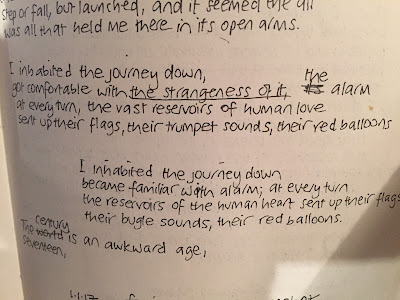 step or fall, but launched, and it seemed the air
was all that held me there in its open arms.
I inhabited the journey down,
got comfortable with the strangeness of it, the alarm
at every turn, the vast reservoirs of human love
sent up their flags, their trumpet sounds, their red balloons
I inhabited the journey down
became familiar with alarm; at every turn
the reservoirs of the human heart sent up their flags
their bugle sounds, their red balloons.
century
The world is an awkward age,
seventeen,
1.1.17